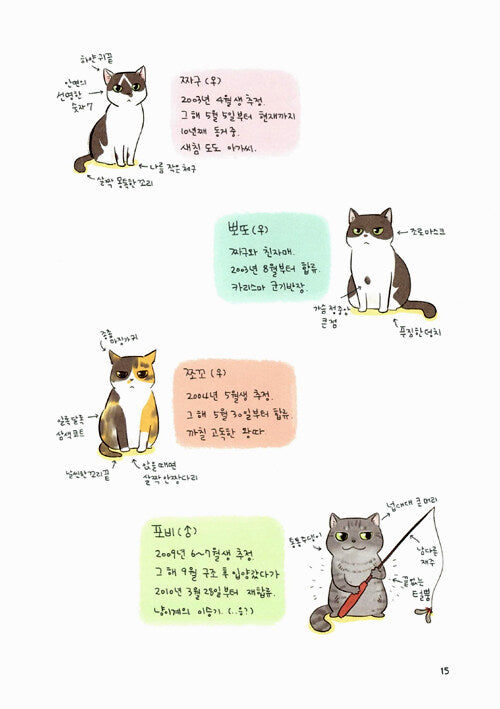 하얀 귀끝
안면의
선명한
숫자 7
짜구 (우)
2003년 4월생 추정.
그 해 5월 5일부터 현재까지
10년째 동거 중.
새침 도도 아가씨.
나름 작은 체구
살짝 뭉툭한 꼬리
뽀또 (우)
찌구와 친자매.
2003년 8월부터 합류.
카리스마 군기반장.
조로 마스크
가슴 정중앙
큰 점
푸짐한 덩치
종종
마징가 귀
쪼꼬 (우)
2004년 5월생 추정.
그 해 5월 30일부터 합류.
까칠 고독한 왕따.
알록달록
삼색 코트
날씬한 꼬리 끝
앉을 때면
살짝 안짱다리
포비 (송)
2009년 6~7월생 추정
그 해 9월 구조 후 입양갔다가
2010년 3월 28일부터 재합류.
냥이계의 이승기. (..응?)
넙대대 큰 머리
통통 주댕이
남다른
재주
끝없는
털뿜
15